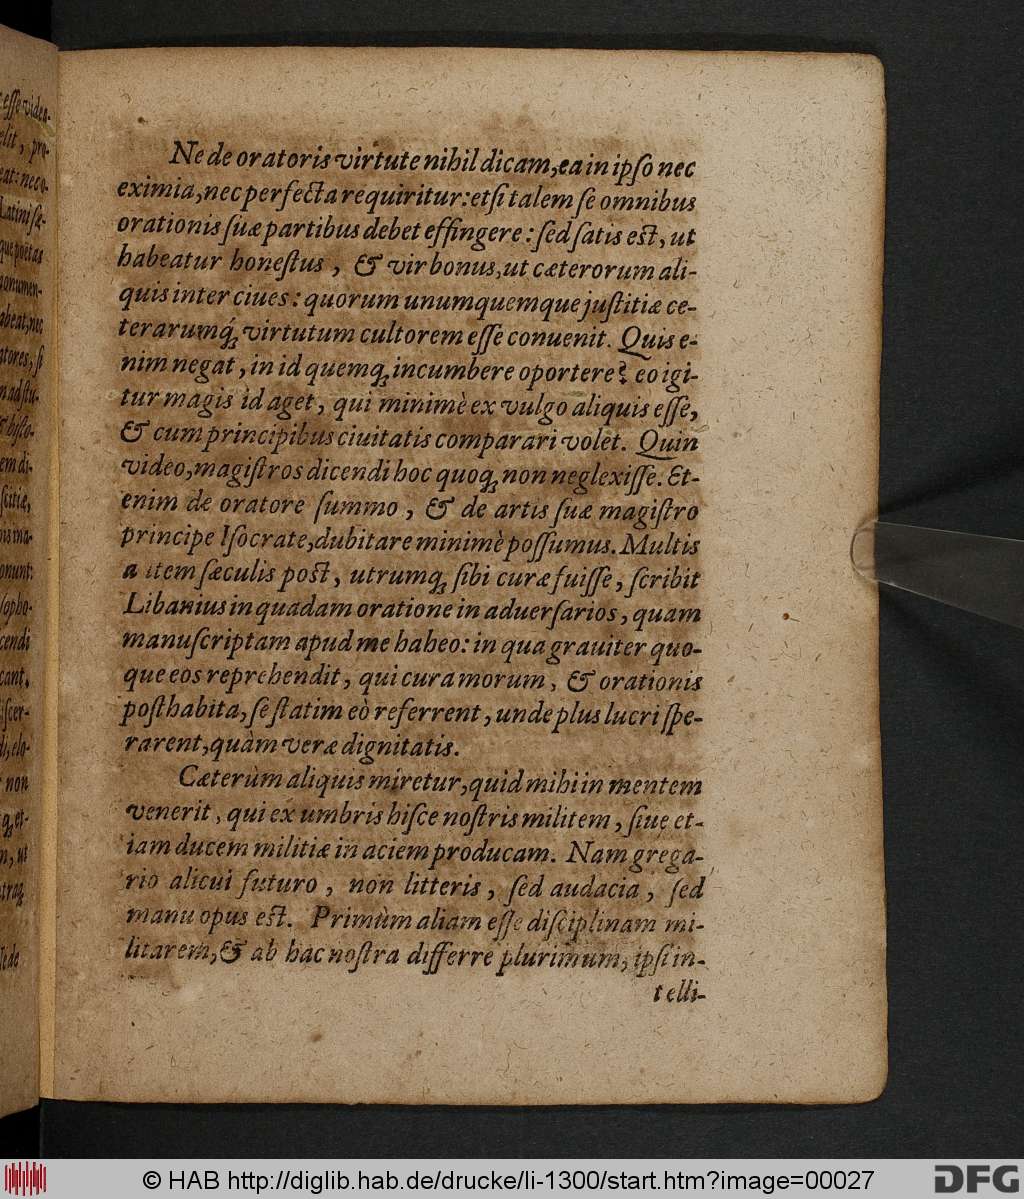 Ne de oratoris virtute nihil dicam, ea in ipſo nec
eximia, nec perfecta requiritur: etſi talem ſe omnibus
orationis ſuæ partibus debet effingere: ſed ſatis eſt, ut
habeatur honeſtus, & vir bonus, ut cæterorum ali-
quis inter ciues: quorum unumquemque juſtitiæ ce-
terarumq́; virtutum cultorem eſſe conuenit. Quis e-
nim negat, in id quemq; incumbere oportere? eo igi-
tur magis id aget, qui minimè ex vulgo aliquis eſſe,
& cum principibus ciuitatis comparari volet. Quin
video, magiſtros dicendi hoc quoq; non neglexiſſe. Et-
enim de oratore ſummo, & de artis ſuæ magiſtro
principe Iſocrate, dubitare minimè poſſumus. Multis
autem ſæculis poſt, utrumq; ſibi curæ fuiſſe, ſcribit
Libanius in quadam oratione in aduerſarios, quam
manuſcriptam apud me habeo: in qua grauiter quo-
que eos reprehendit, qui cura morum, & orationis
poſthabita, ſe ſtatim eò referrent, unde plus lucri ſpe-
rarent, quàm veræ dignitatis.
Cæterùm aliquis miretur, quid mihi in mentem
venerit, qui ex umbris hiſce noſtris militem, ſiue et-
iam ducem militiæ in aciem producam. Nam grega-
rio alicui futuro, non litteris, ſed audacia, ſed
manu opus eſt. Primùm aliam eſſe diſciplinam mi-
litarem, & ab hac noſtra differre plurimum, ipſi in-
telli-
© HAB http://diglib.hab.de/drucke/li-1300/start.htm?image=00027
DFG